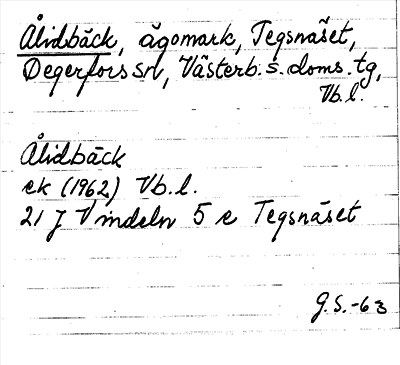 Ålidsbäck, ägomark, Tegsnäset,
Degerfors sn, Västerb. s. doms. tg,
Vb. l.
Ålidbäck
ek (1962) Vb. l.
21 J Vindeln 5 e Tegsnäset
G.S.-63